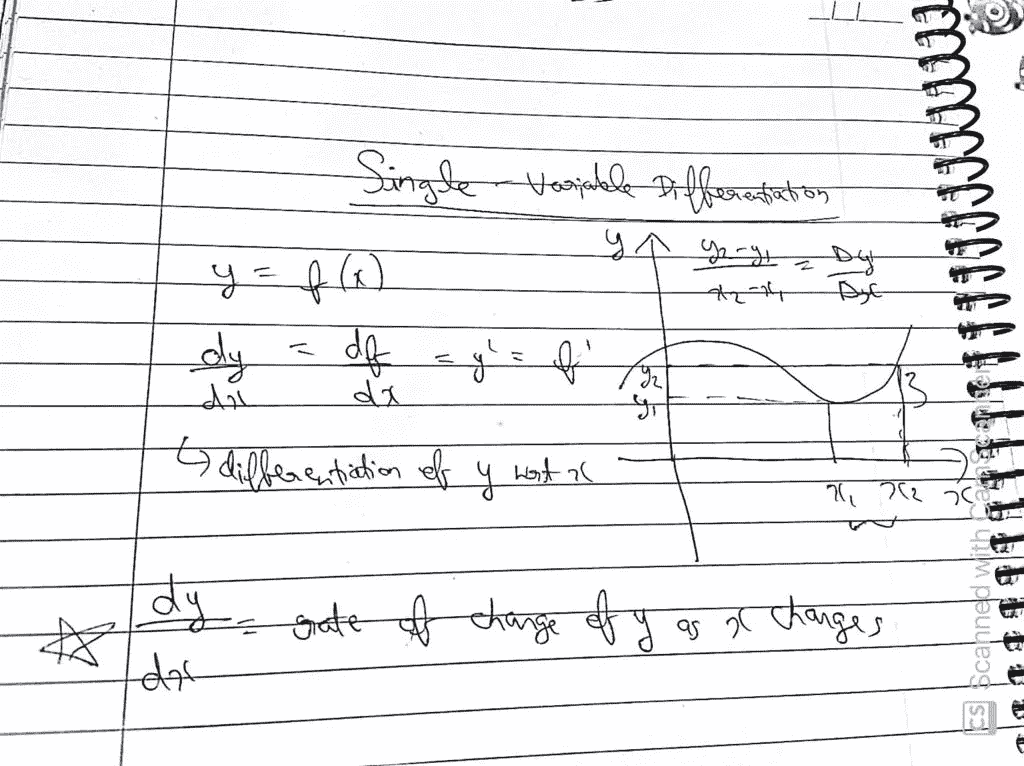 Single - Variable Differentiation
y = f(x)
dy/dx = df/dx = y' = f'
↳ differentiation of y wrt x
y
y2-y1/x2-x1 = Dy/Dx
y2
y1
x1 x2 x
☆ dy/dx = rate of change of y as x changes
CS Scanned with CamScanner